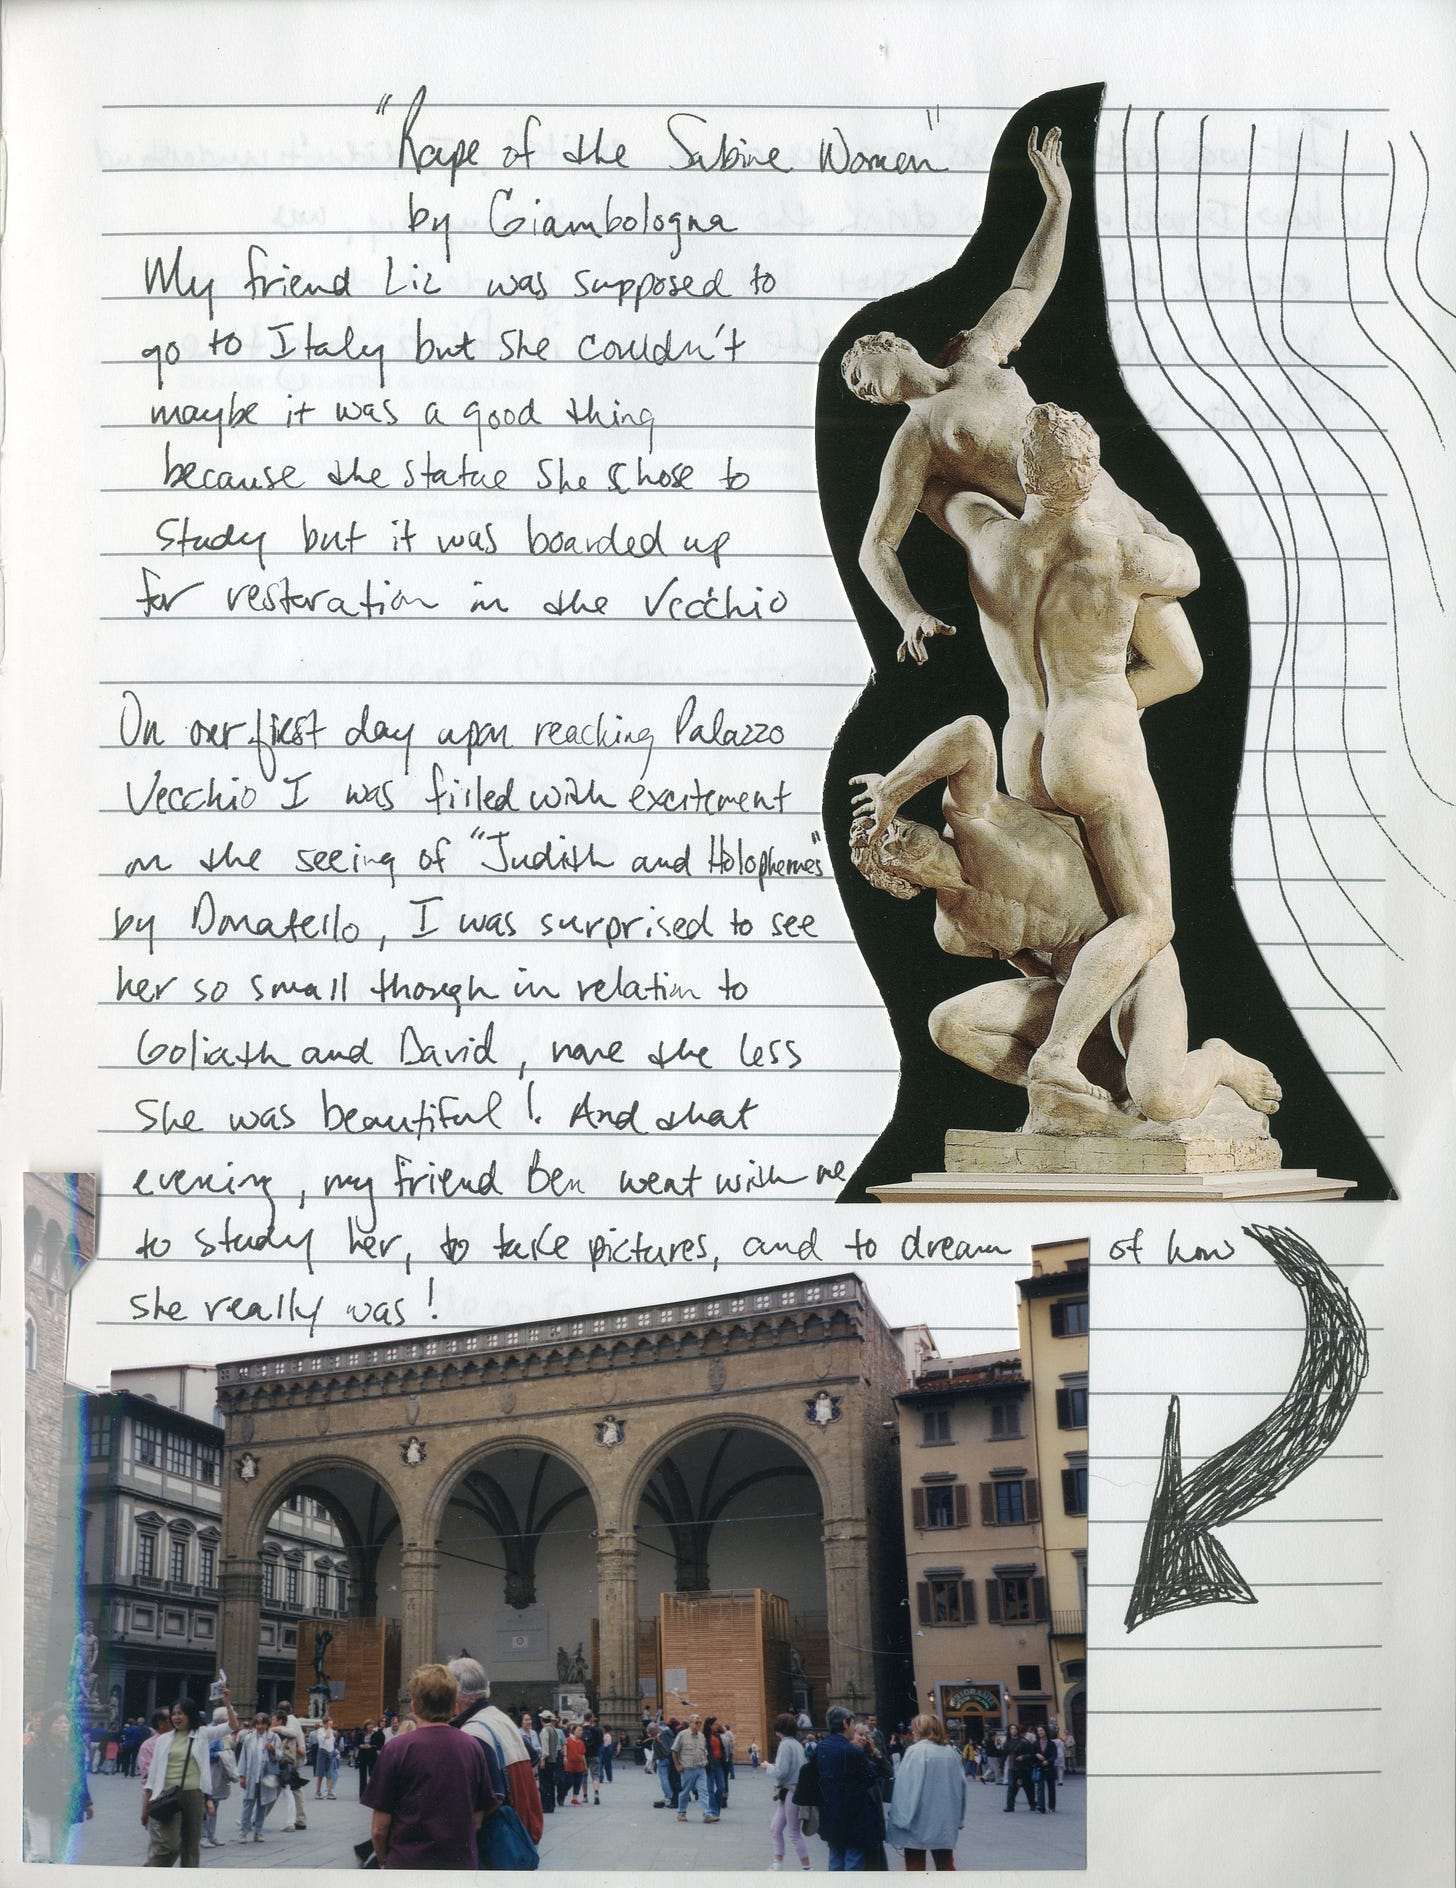 "Rape of the Sabine Women"
by Giambologna
My friend Liz was supposed to
go to Italy but she couldn't
maybe it was a good thing
because the statue she chose to
study but it was boarded up
for restoration in the Vecchio
On our first day upon reaching Palazzo
Vecchio I was filled with excitement
on the seeing of "Judith and Holophernes"
by Donatello, I was surprised to see
her so small though in relation to
Goliath and David, none the less
she was beautiful! And that
evening, my friend Ben went with me
to study her, to take pictures, and to dream of how
she really was!
RISTORANTE